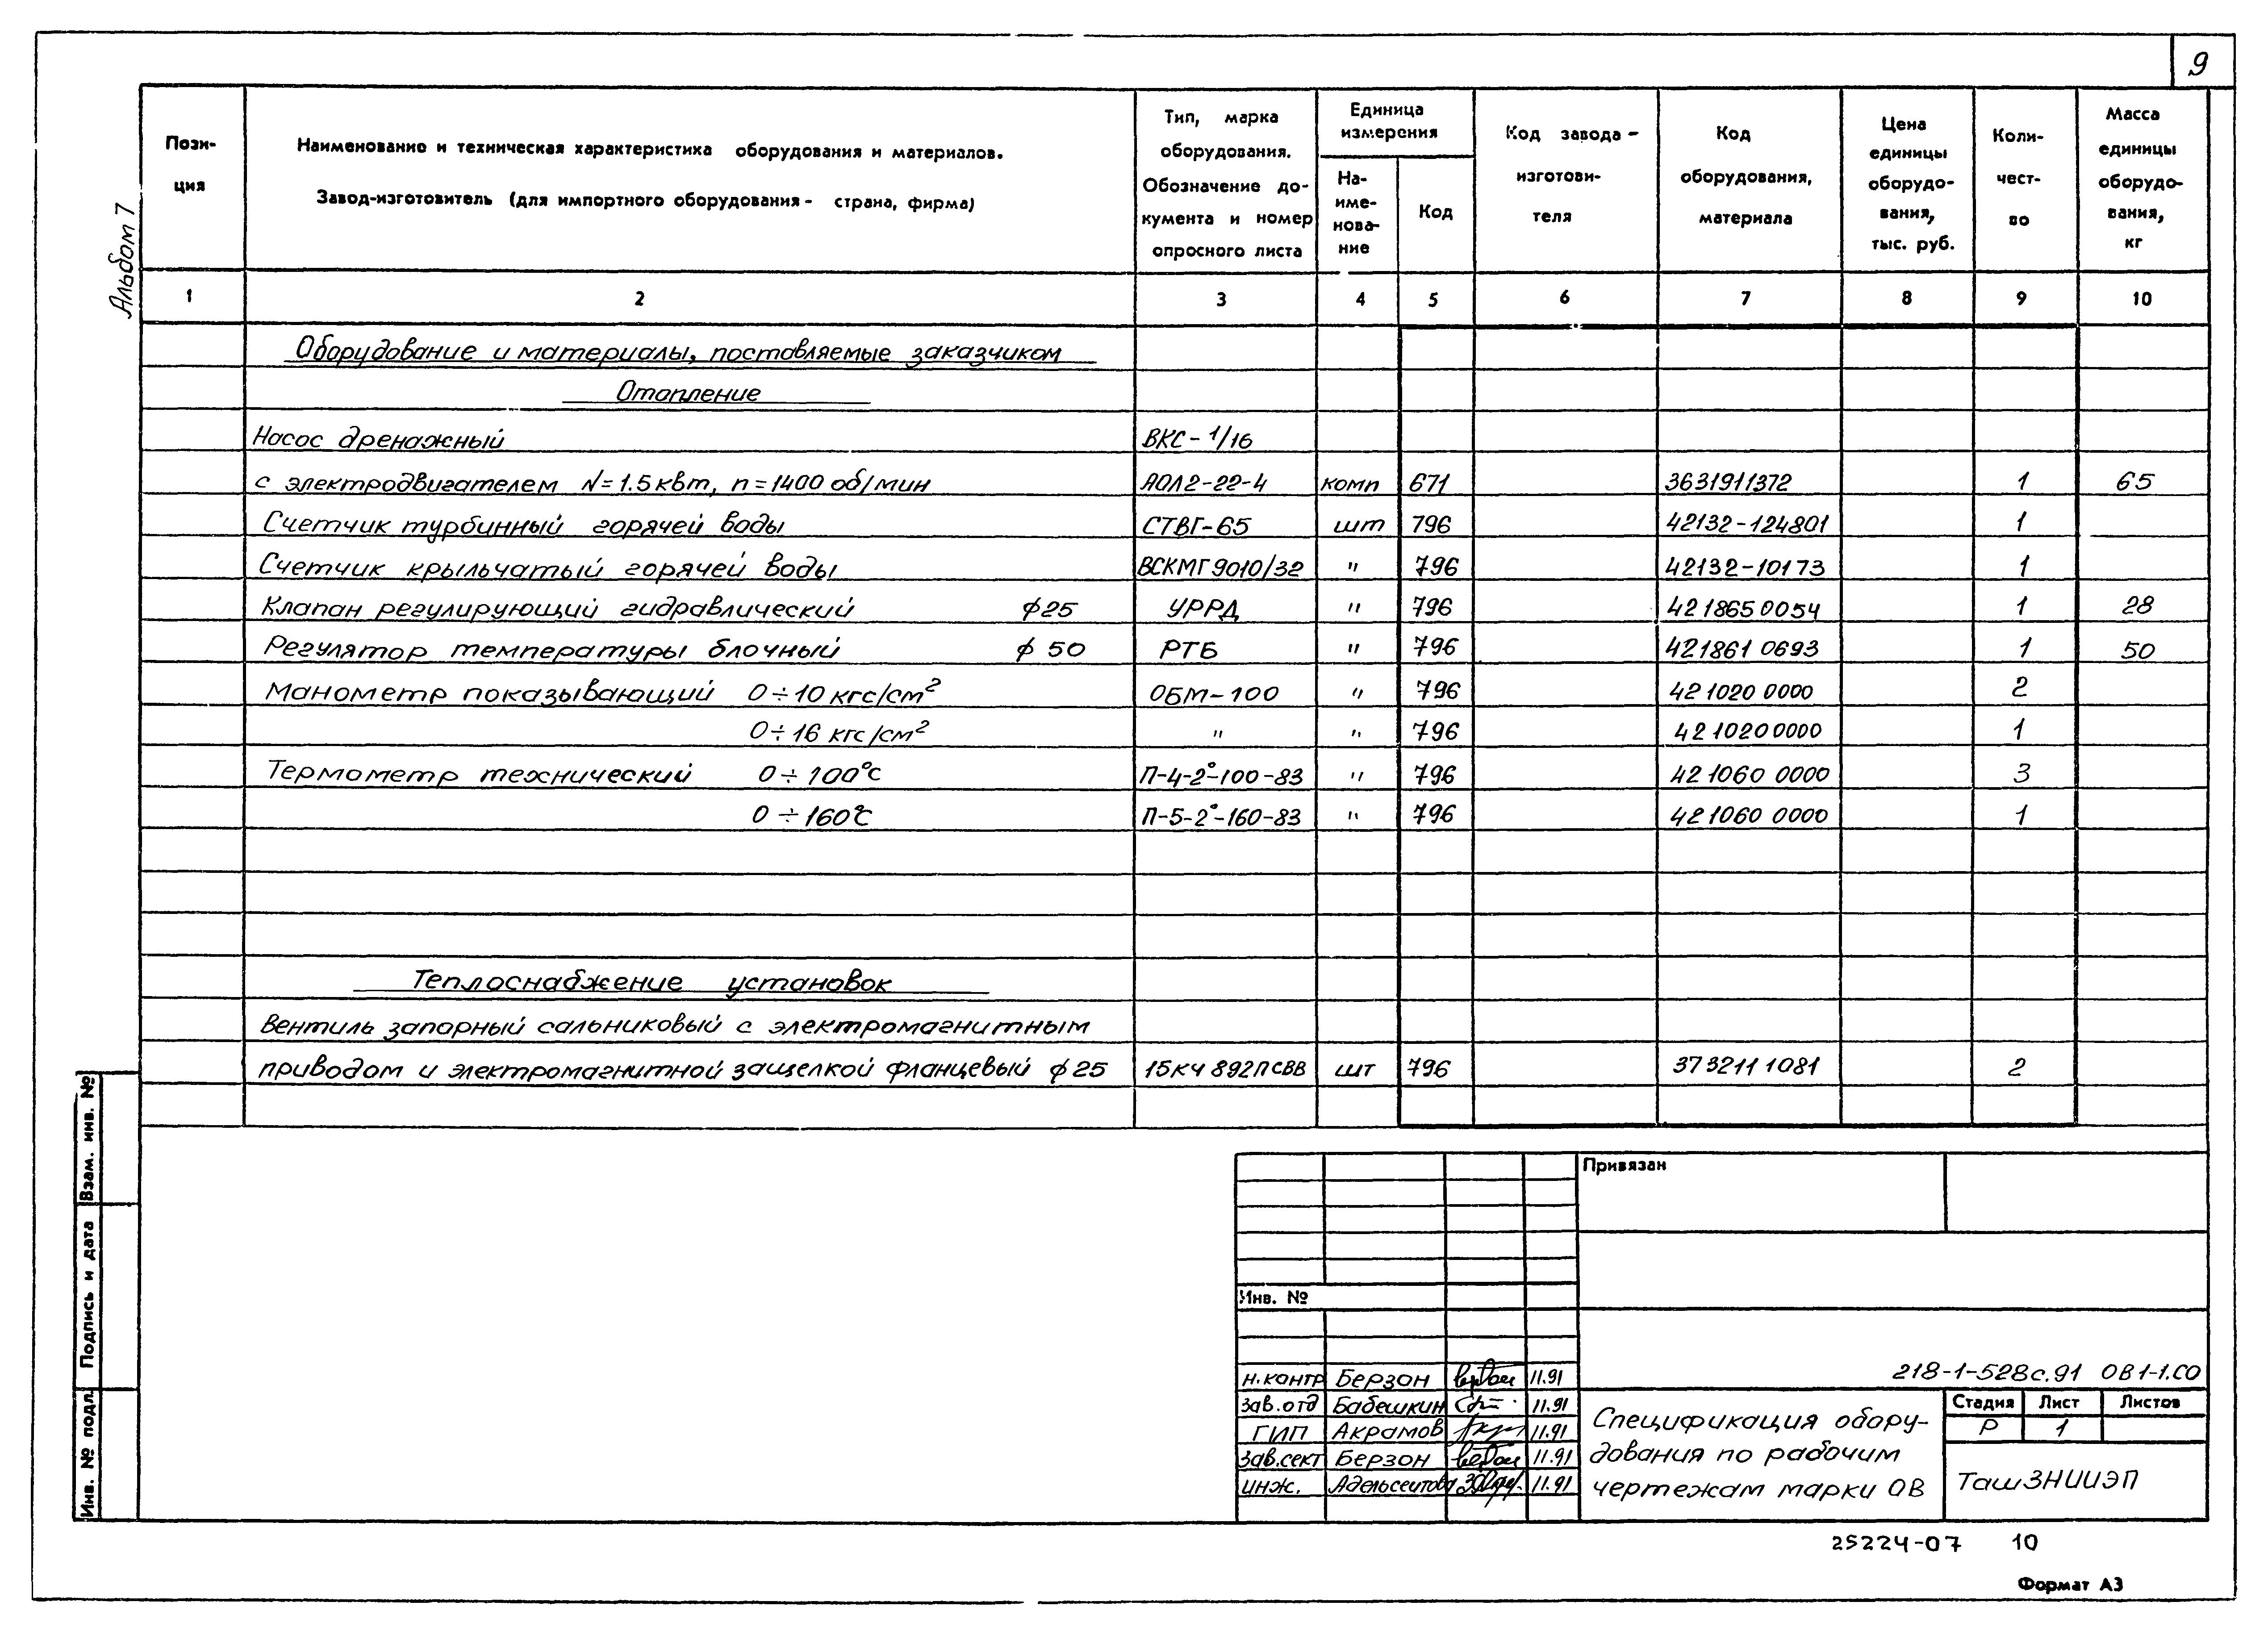 9
Альбом 7
Пози-
ция
Наименование и техническая характеристика оборудования и материалов.
Завод-изготовитель (для импортного оборудования - страна, фирма)
Тип, марка
оборудования.
Обозначение до-
кумента и номер
опросного листа
Единица
измерения
На-
име-
нова-
ние
Код
Код завода -
изготови-
теля
Код
оборудования,
материала
Цена
единицы
оборудо-
вания,
тыс. руб.
Коли-
чест-
во
Масса
единицы
оборудо-
вания,
кг
1 2 3 4 5 6 7 8 9 10
Оборудование и материалы, поставляемые заказчиком
Отопление
Насос дренажный ВКС-1/16
с электродвигателем N=1.5квт, n=1400 об/мин АОЛ2-22-4 комп 671 3631911372 1 65
Счетчик турбинный горячей воды СТВГ-65 шт 796 42132-124801 1
Счетчик крыльчатый горячей воды ВСКМГ 9010/32 " 796 42132-10173 1
Клапан регулирующий гидравлический ϕ25 УРРД " 796 421865 0054 1 28
Регулятор температуры блочный ϕ 50 РТБ " 796 421861 0693 1 50
Манометр показывающий 0÷10 кгс/см² ОБМ-100 " 796 421020 0000 2
0÷16 кгс/см² " " 796 421020 0000 1
Термометр технический 0÷100°С П-4-2°-100-83 " 796 421060 0000 3
0÷160°С П-5-2°-160-83 " 796 421060 0000 1
Теплоснабжение установок
Вентиль запорный сальниковый с электромагнитным
приводом и электромагнитной защелкой фланцевый ϕ25 15кч 892п СВВ шт 796 373211 1081 2
Взам. инв. №
Подпись и дата
Инв. № подл.
Привязан
Инв. №
218-1-528с.91 ОВ1-1.СО
н.контр Берзон 11.91
зав.отд Бабешкин 11.91
ГИП Акрамов 11.91
Зав.сект Берзон 11.91
инж. Адельсеитова 11.91
Спецификация обору-
дования по рабочим
чертежам марки ОВ
Стадия Лист Листов
Р 1
ТашЗНИИЭП
25224-07 10
Формат А3